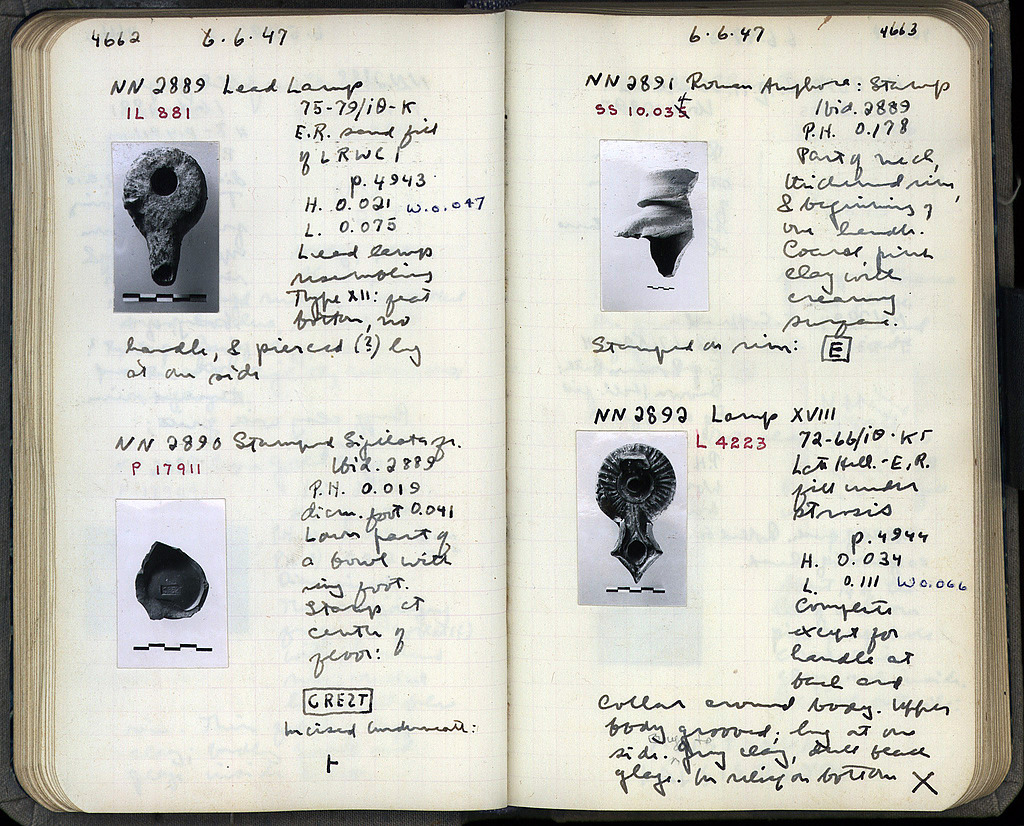 4662
6.6.47
NN 2889 Lead Lamp
IL 881
75-79/ΙΘ-Κ
E.R. sand fill
of LRWC 1
p. 4943
H. 0.021 W. 0.047
L. 0.075
Lead lamp
resembling
Type XII: flat
bottom, no
handle, & pierced (?) lug
at one side
NN 2890 Stamped Sigillata fr.
P 17911
Ibid. 2889
P.H. 0.019
diam. foot 0.041
Lower part of
a bowl with
ring foot.
Stamp at
center of
floor:
Incised underneath:
6.6.47
4663
NN 2891 Roman Amphora: Stamp
SS 10.034
Ibid. 2889
P.H. 0.178
Part of neck,
thickened rim,
& beginning of
one handle.
Coarse pink
clay with
creamy
surface.
Stamped on rim: E
NN 2892 Lamp XVIII
L 4223
72-66/ΙΘ-ΚΓ
Late Hell.-E.R.
fill under
strosis
p. 4944
H. 0.034
L. 0.111 W 0.066
Complete
except for
handle at
back and
collar around body. Upper
body grooved; lug at one
side. Gray clay, dull black
glaze. In relief on bottom X